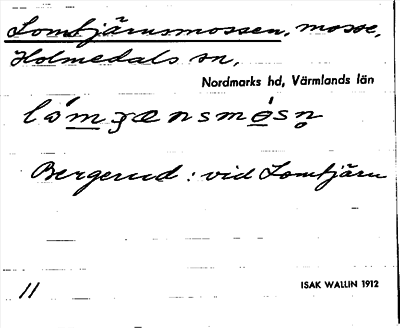 Lomtjärnsmossen, mosse,
Holmedals sn,
Nordmarks hd, Värmlands län
Bergerud : vid Lomtjärn
11
ISAK WALLIN 1912